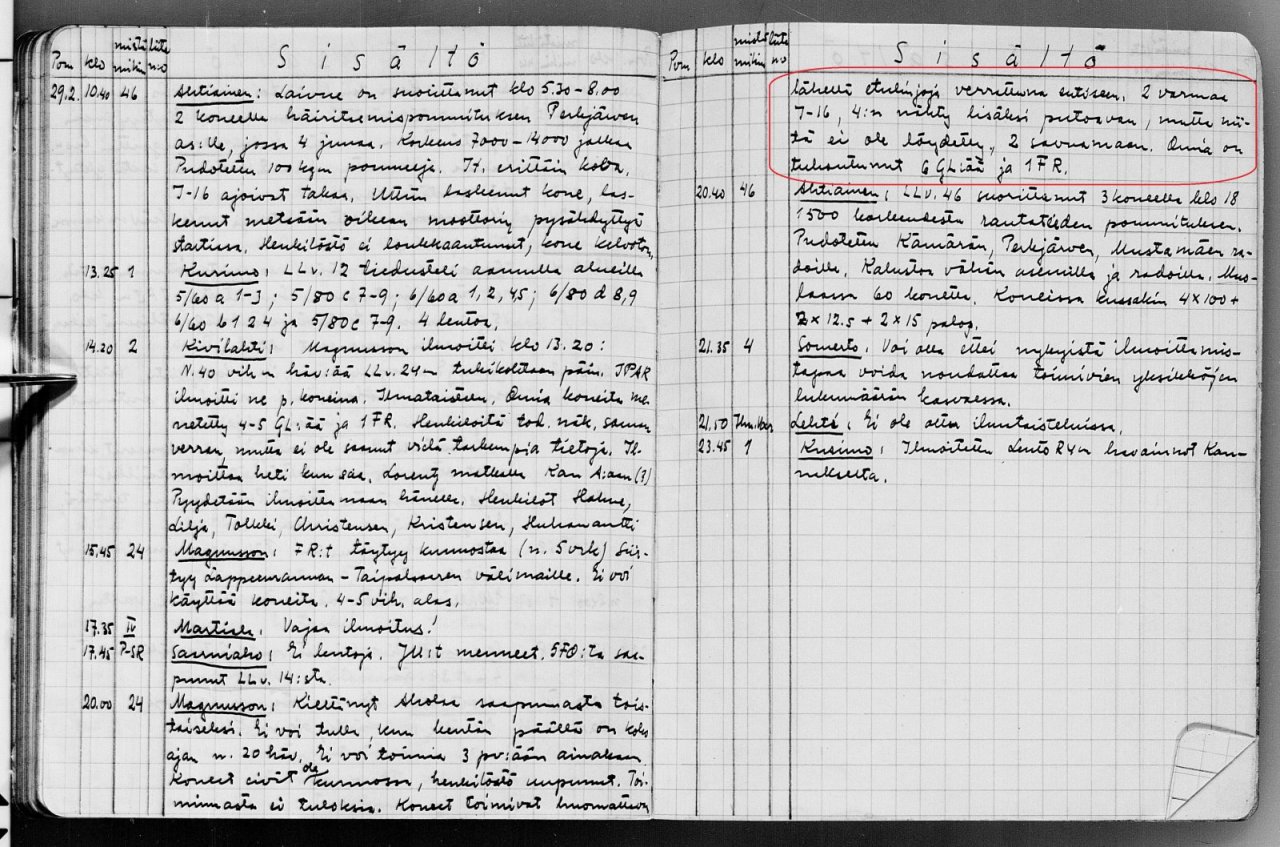 Pvm klo mistä mihin liite no Sisältö
29.2. 10.40 46 Ahtiainen: Laivue on suorittanut klo 5.30-8.00
2 koneella häiritsemispommituksen Perkjärven
as:lle, jossa 4 junaa. Korkeus 7000-14000 jalkaa
Pudotettu 100 kg:n pommeja. It. erittäin kova.
J-16 ajoivat takaa. Uttiin laskenut kone, las-
kenut metsään oikean moottorin pysähdyttyä
startissa. Henkilöstö ei loukkaantunut, kone kelvoton.
13.25 1 Kurimo: LLv. 12 tiedusteli aamulla alueilla
5/60 a 1-3; 5/80 c 7-9; 6/60 a 1, 2, 4,5; 6/80 d 8,9
6/60 b 1 2 4 ja 5/80 c 7-9. 4 lentoa.
14.20 2 Kivilahti: Magnusson ilmoitti klo 13.20:
N. 40 vih-n häv:ää LLv. 24-n tukikohtaan päin. JPAR
ilmoitti ne p. koneina. Ilmataistelu. Omia koneita me-
netetty 4-5 GL:ää ja 1 FR. Henkilöitä tod. näk. saman
verran, mutta ei ole saanut vielä tarkempia tietoja. Il-
moittaa heti kun saa. Lorentz matkalla Kan A:aan (?)
Pyydetään ilmoittamaan hänelle. Henkilöt Halme,
Lilja, Tolkki, Christensen, Kristensen, Huhanantti
15.45 24 Magnusson: FR:t täytyy kunnostaa (n. 5 vrk) Siir-
tyy Lappeenrannan-Taipalsaaren välimaille. Ei voi
käyttää koneita. 4-5 vih. alas.
17.35 IV Martiala. Vajaa ilmoitus!
17.45 P-SR Sarniaho: Ei lentoja. JU:t menneet. 5 FO:ta saa-
punut LLv. 14:sta.
20.00 24 Magnusson: Kieltänyt Aholaa saapumasta tois-
taiseksi. Ei voi tulla, kun kentän päällä on koko
ajan n. 20 häv. Ei voi toimia 3 pv:ään ainakaan
Koneet eivät ole kunnossa, henkilöstö uupunut. Toi-
minnasta ei tuloksia. Koneet toimivat huomattavan
Pvm klo mistä mihin liite no Sisältö
lähellä etulinjoja verrattuna entiseen. 2 varmaa
J-16, 4:n nähty lisäksi putoavan, mutta nii-
tä ei ole löydetty, 2 savuamaan. Omia on
tuhoutunut 6 GL:ää ja 1 FR.
20.40 46 Ahtiainen: LLv. 46 suorittanut 3 koneella klo 18
1500 korkeudesta rautateiden pommituksen.
Pudotettu Kämärän, Perkjärven, Mustamäen ra-
doille. Kalustoa vähän asemilla ja radoilla. Muo-
laassa 60 konetta. Koneissa kussakin 4x100+
2x12.5+2x15 palop.
21.35 4 Somerto. Voi olla ettei nykyistä ilmoittamis-
tapaa voida noudattaa toimivien yksikköjen
lukumäärän kasvaessa.
21.50 Lehtö: Ei ole ollut ilmataisteluissa.
23.45 1 Kurimo: Ilmoitettu Lento R4:n havainnot Kan-
nakselta.